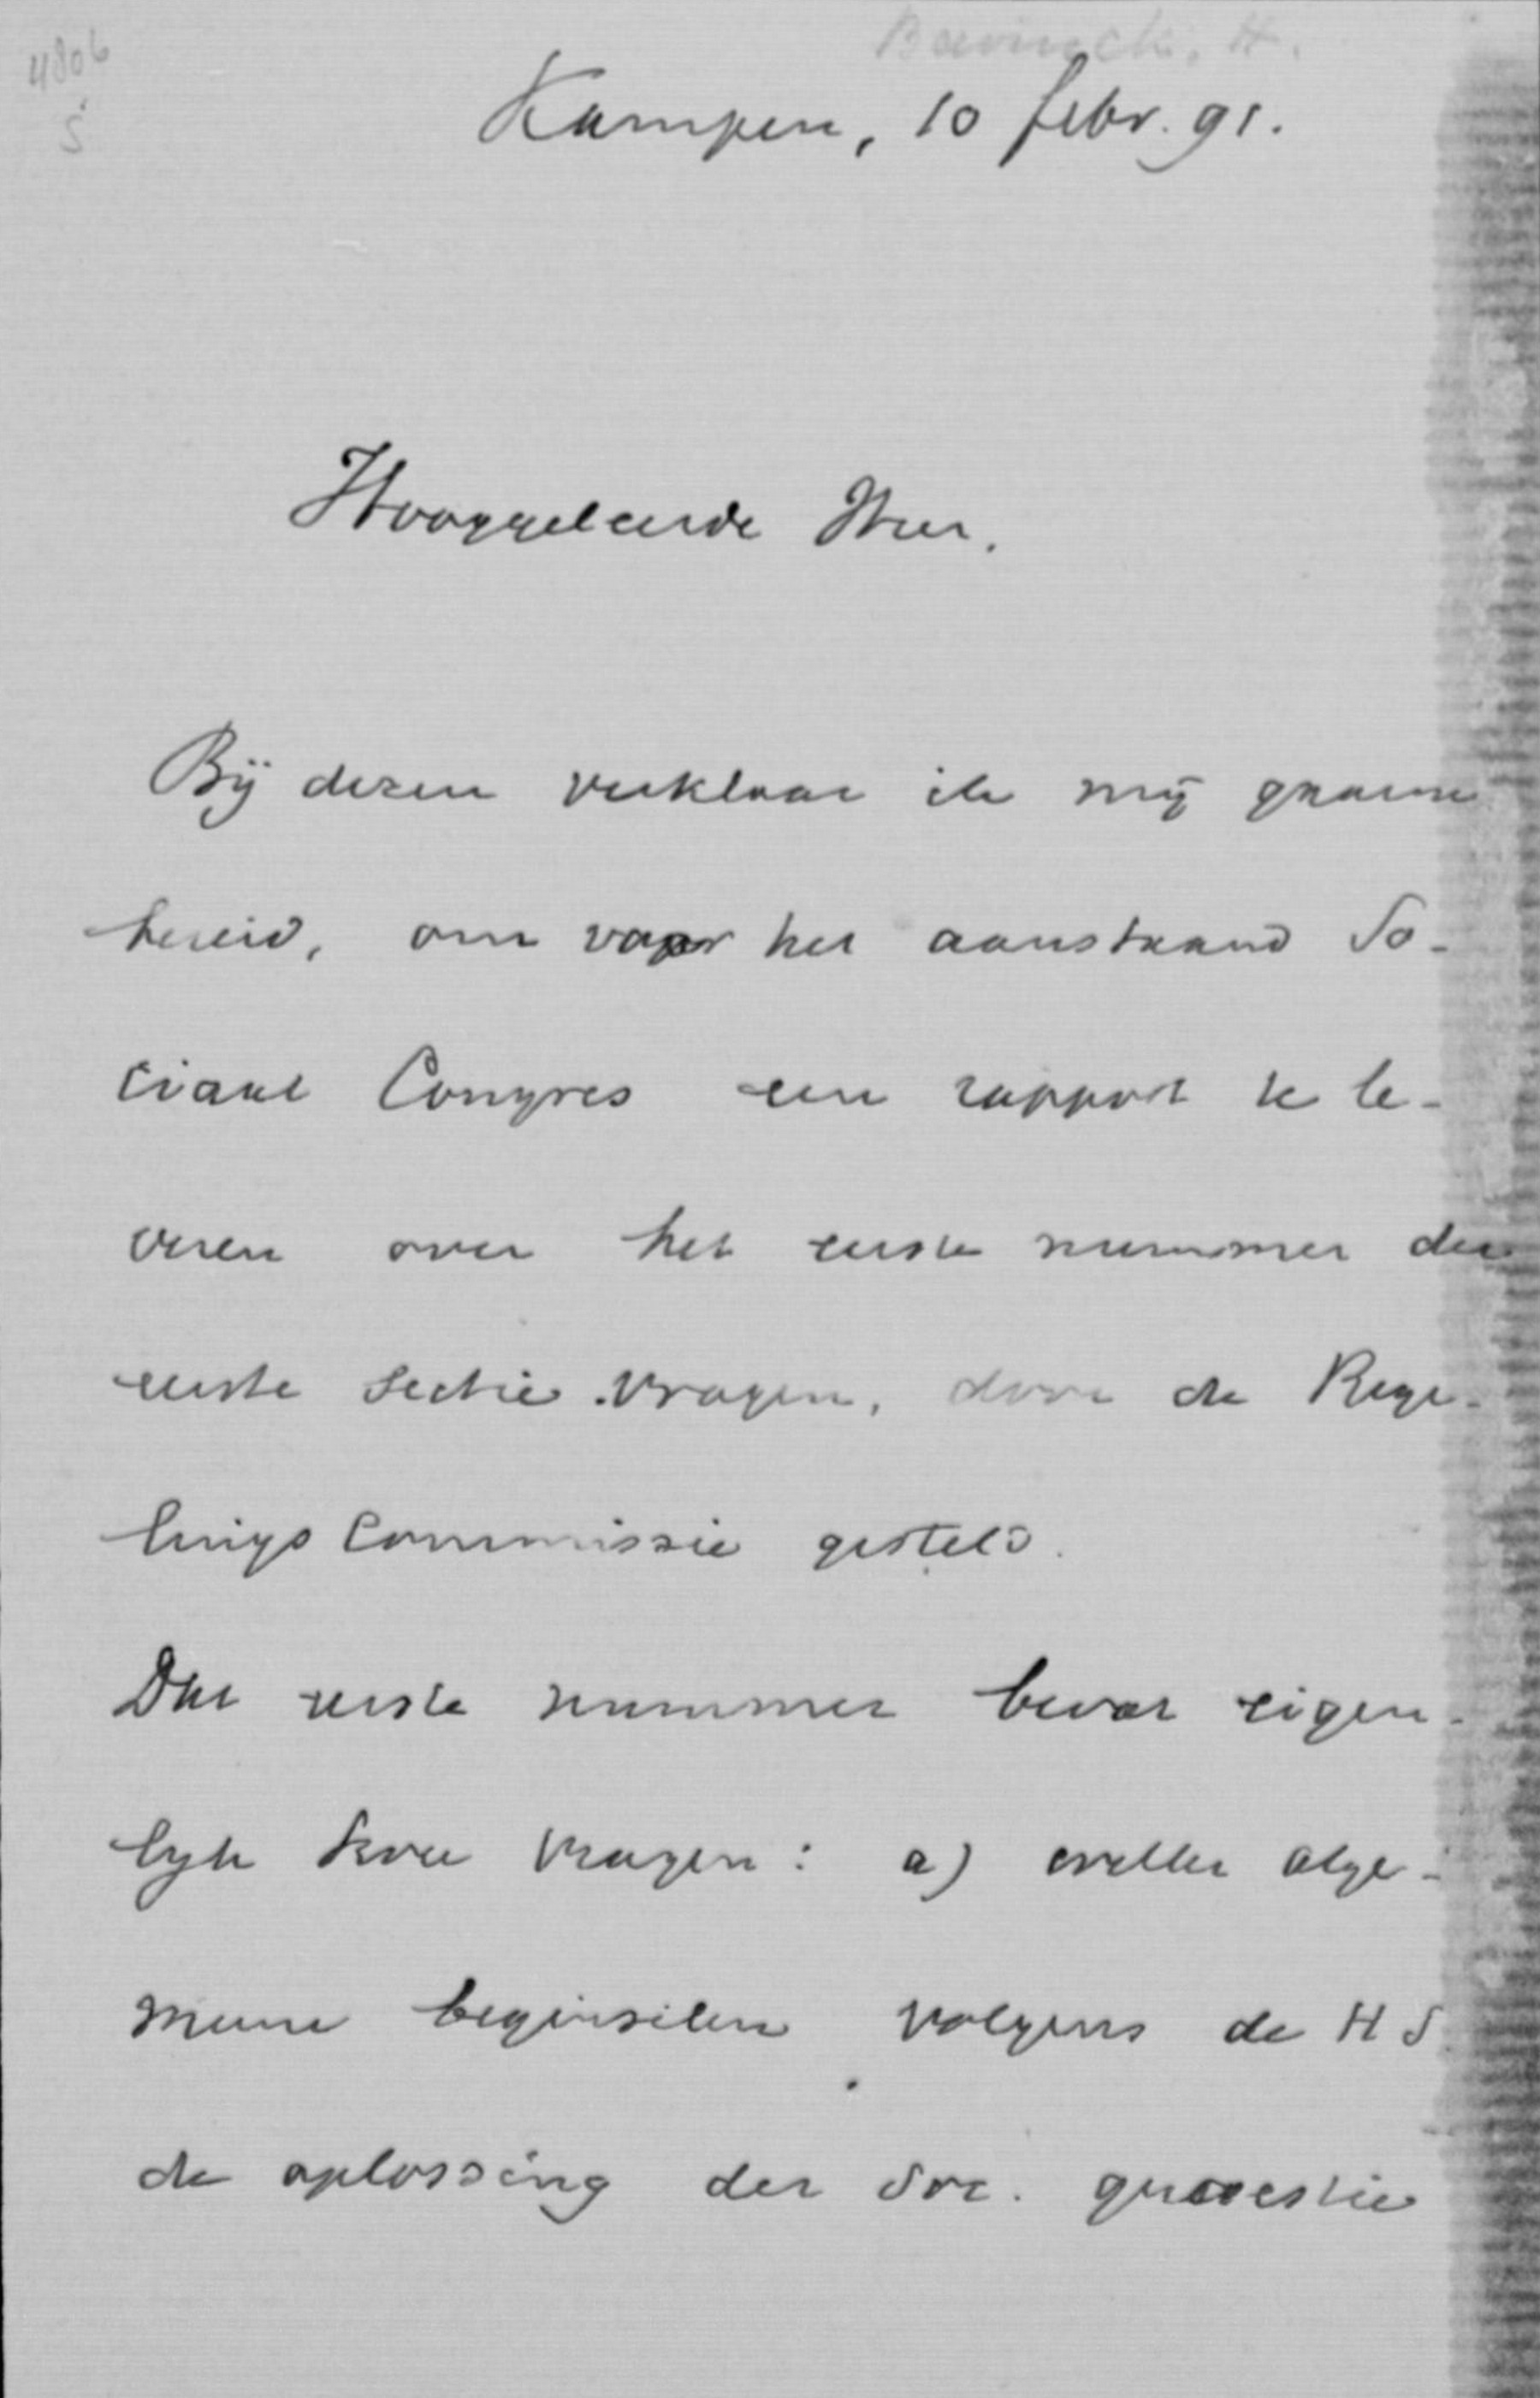 4806
5
Bavinck, H.
Kampen, 10 febr. 91.
Hooggeleerde Heer.
Bij dezen verklaar ik mij gaarne
bereid, om voor het aanstaand So-
ciaal Congres een rapport te le-
veren over het eerste nummer der
eerste sectie-vragen, door de Rege-
lings Commissie gesteld.
Dat eerste nummer bevat eigen-
lijk twee vragen: a) welke alge-
meene beginselen volgens de H S
de oplossing der soc. quaestie